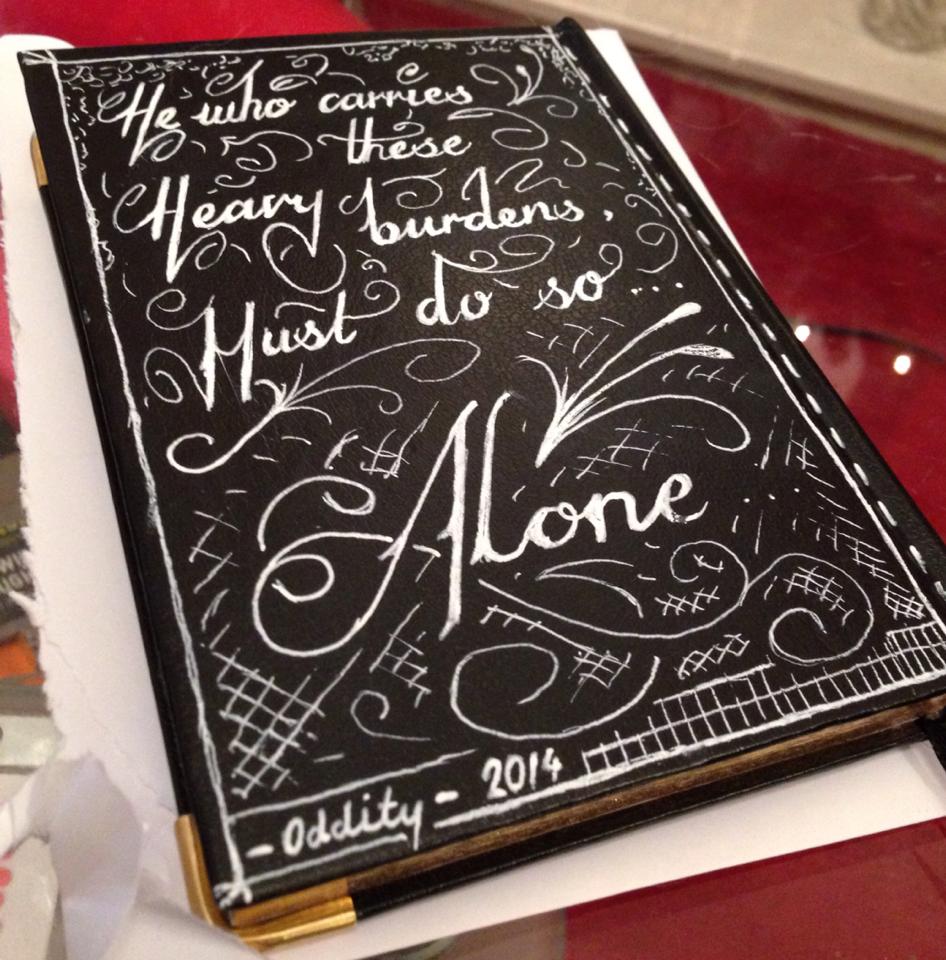 He who carries
these
Heavy burdens,
Must do so...
Alone...
- Oddity - 2014